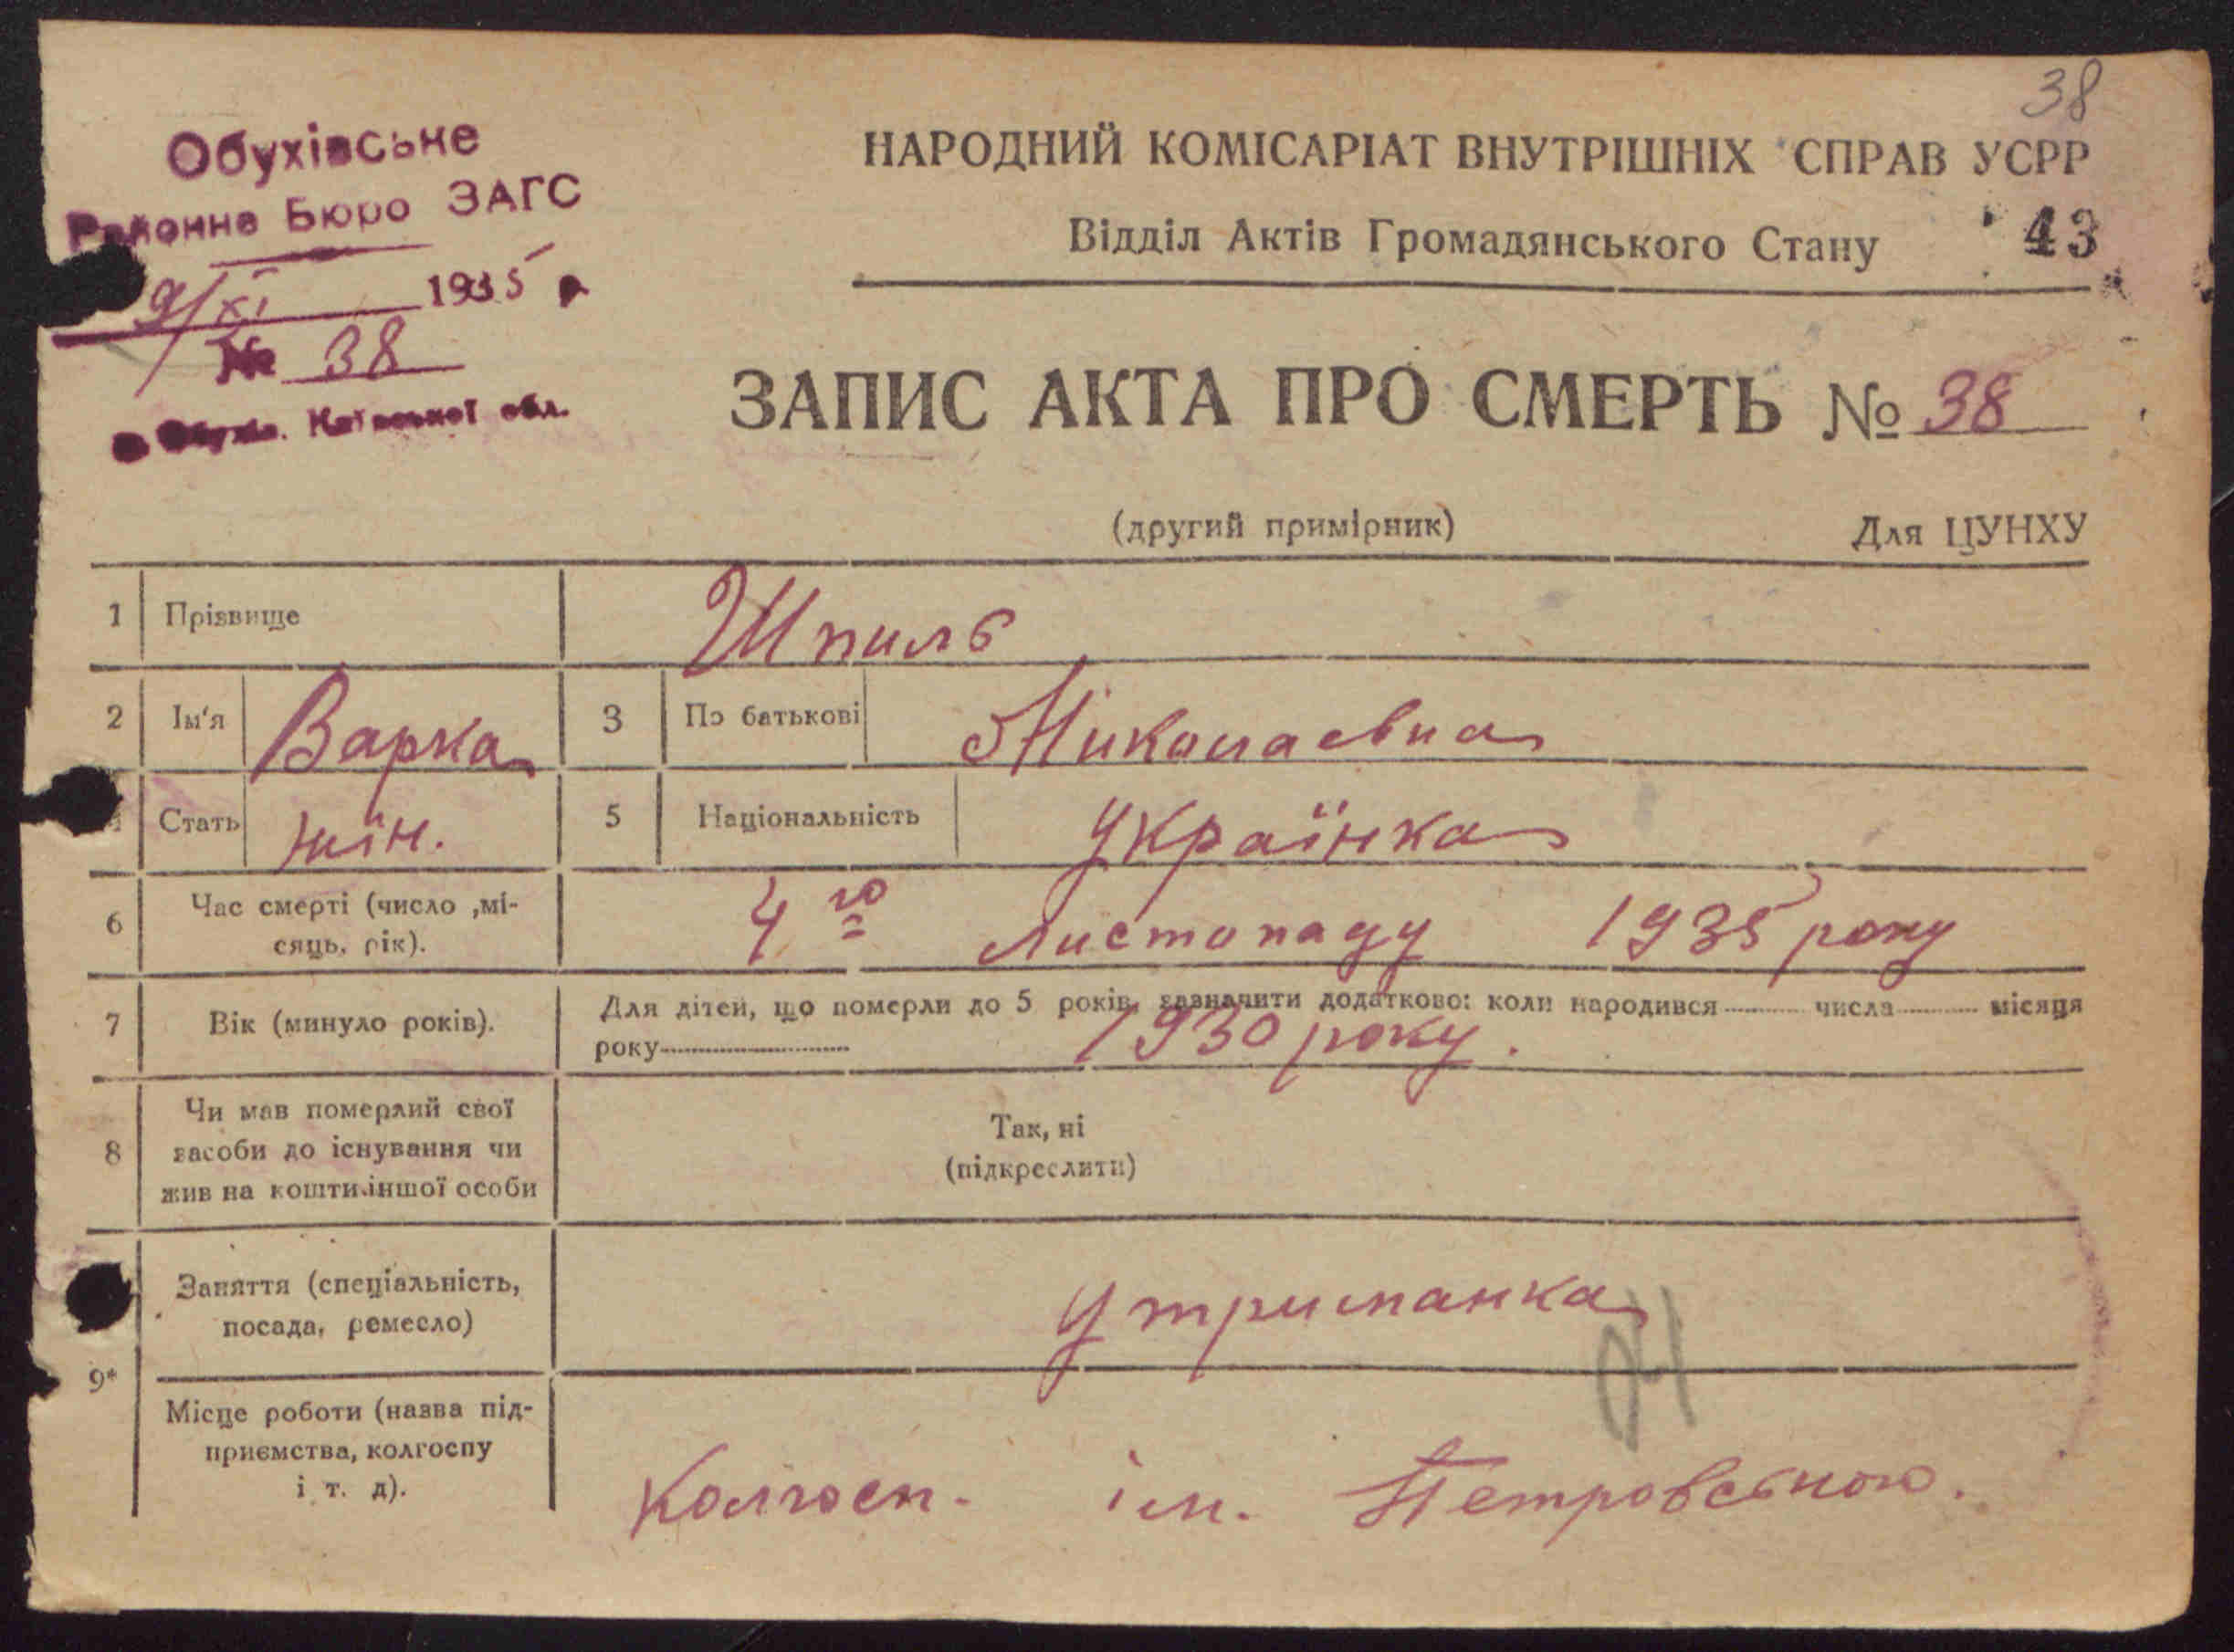 38
Обухівське
Районне Бюро ЗАГС
9/XI 1935 р
№ 38
м. Обухів. Київської обл.
НАРОДНИЙ КОМІСАРІАТ ВНУТРІШНІХ СПРАВ УСРР
Відділ Актів Громадянського Стану
43
ЗАПИС АКТА ПРО СМЕРТЬ № 38
(другий примірник) Для ЦУНХУ
1 Прізвище Шпиль
2 Ім'я Варка 3 По батькові Миколаевна
Стать жін. 5 Національність Українка
6 Час смерті (число ,мі-
сяць, рік). 4 го Листопаду 1935 року
7 Вік (минуло років). Для дітей, що померли до 5 років, зазначити додатково: коли народився числа місяця
року 1930 року.
8 Чи мав померлий свої
засоби до існування чи
жив на кошти іншої особи
Так, ні
(підкреслити)
9*
Заняття (спеціальність,
посада, ремесло) Утриманка
Місце роботи (назва під-
приємства, колгоспу
і т. д). Колгосп. ім. Петровського.